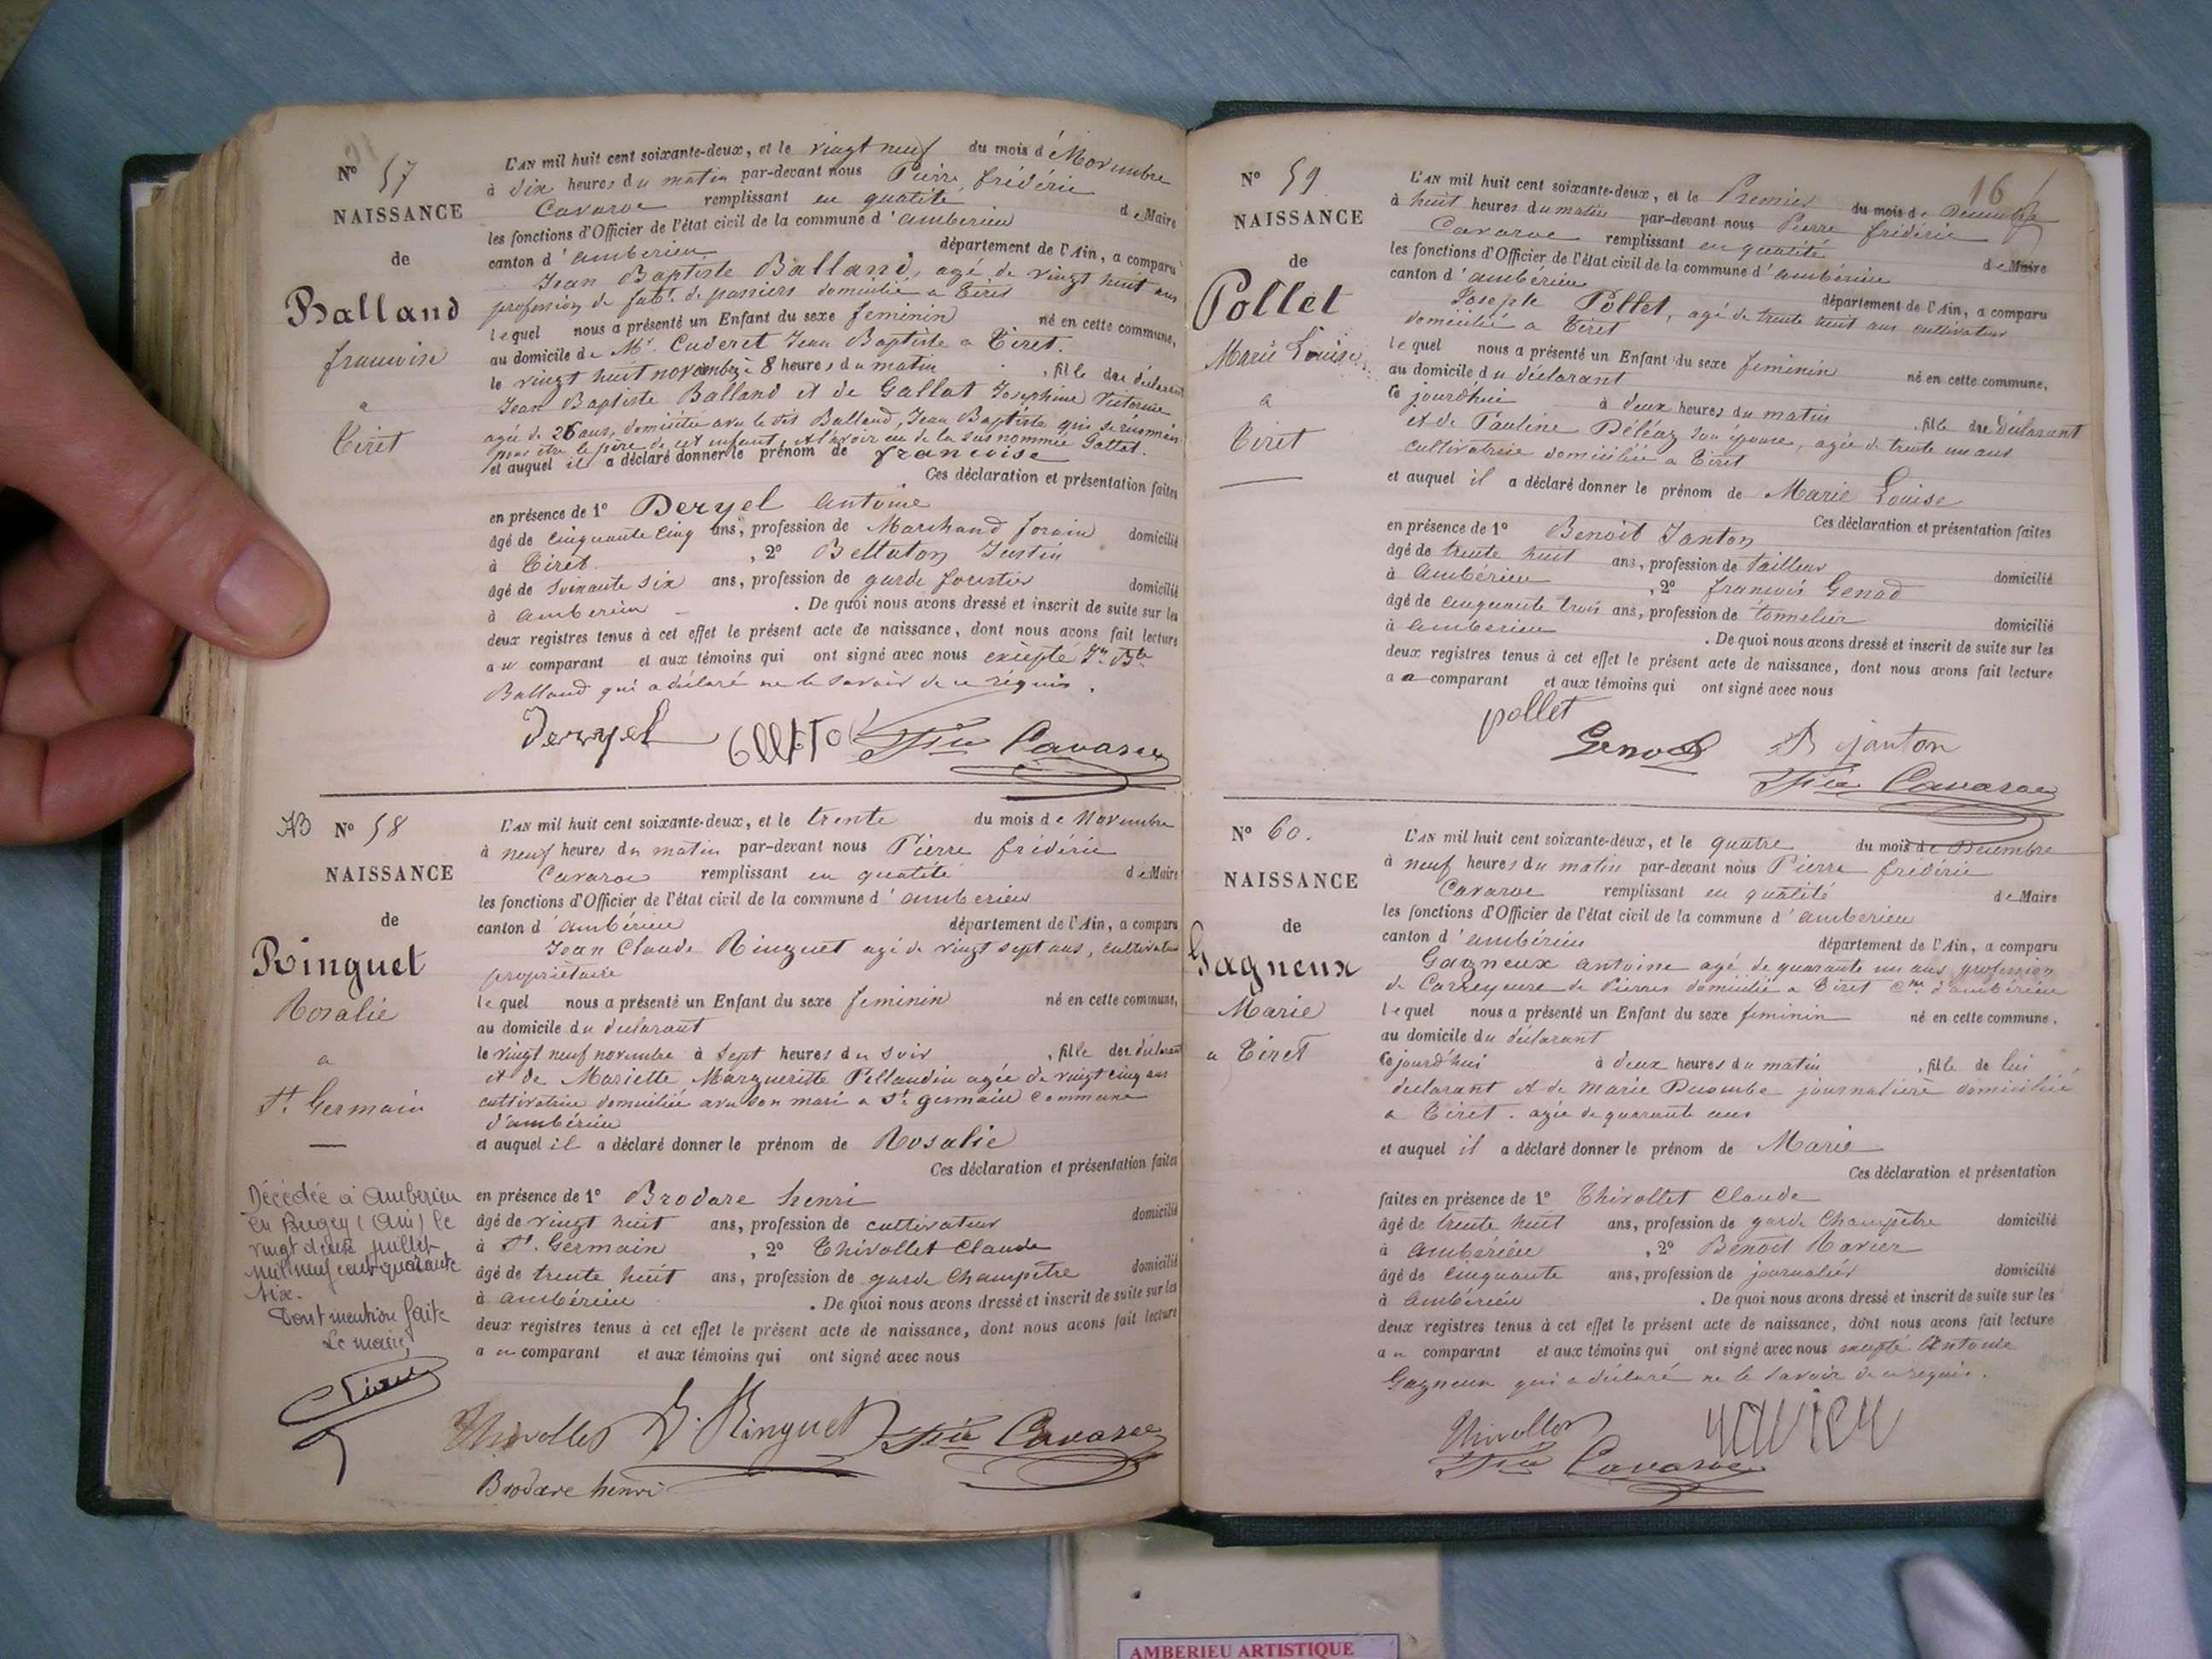 N° 57
NAISSANCE
de
Balland
francoise
a
Tiret
L'AN mil huit cent soixante-deux, et le vingt neuf du mois de Novembre
à dix heures du matin par-devant nous Pierre frédéric
Cavaroc remplissant en qualité de Maire
les fonctions d'Officier de l'état civil de la commune d'amberieu
canton d'amberieu département de l'Ain, a comparu
Jean Baptiste Balland, agé de vingt huit ans
profession de fabt. de paniers domicilié a Tiret
lequel nous a présenté un Enfant du sexe feminin né en cette commune,
au domicile de Mr. Cuderet Jean Baptiste a Tiret.
le vingt huit novembre à 8 heures du matin, fille du déclarant
Jean Baptiste Balland et de Gallat Josephine Victorine
agée de 26 ans, domiciliée avec le dit Balland, Jean Baptiste qui se reconnait
pour être le père de cet enfant, et l'avoir eu de la sus nommée Gallat.
et auquel il a déclaré donner le prénom de francoise
Ces déclaration et présentation faites
en présence de 1° Deryel antoine
âgé de cinquante cinq ans, profession de Marchand forain domicilié
à Tiret, 2° Belluton Justin
âgé de soixante six ans, profession de garde forestier domicilié
à amberieu. De quoi nous avons dressé et inscrit de suite sur les
deux registres tenus à cet effet le présent acte de naissance, dont nous avons fait lecture
au comparant et aux témoins qui ont signé avec nous excepté Jn. Bte
Balland qui a déclaré ne le savoir de ce réquis.
Deryel Cavaroc
N° 58
NAISSANCE
de
Ringuet
Rosalie
a
St. Germain
Décédée à Amberieu
en Bugey (Ain) le
vingt deux juillet
mil neuf cent quarante
six.
Dont mention faite
Le maire,
L'AN mil huit cent soixante-deux, et le trente du mois de Novembre
à neuf heures du matin par-devant nous Pierre frédéric
Cavaroc remplissant en qualité de Maire
les fonctions d'Officier de l'état civil de la commune d'amberieu
canton d'ambérieu département de l'Ain, a comparu
Jean Claude Ringuet agé de vingt sept ans, cultivateur
propriétaire
lequel nous a présenté un Enfant du sexe feminin né en cette commune,
au domicile du declarant
le vingt neuf novembre à sept heures du soir, fille du déclarant
et de Mariette Margueritte Pellaudin agée de vingt cinq ans
cultivatrice domiciliée avec son mari a St. germain commune
d'ambérieu
et auquel il a déclaré donner le prénom de Rosalie
Ces déclaration et présentation faites
en présence de 1° Brodare henri
âgé de vingt huit ans, profession de cultivateur domicilié
à St. Germain, 2° Thivollet Claude
âgé de trente huit ans, profession de garde Champêtre domicilié
à ambérieu. De quoi nous avons dressé et inscrit de suite sur les
deux registres tenus à cet effet le présent acte de naissance, dont nous avons fait lecture
au comparant et aux témoins qui ont signé avec nous
Thivollet Ringuet Cavaroc
Brodare henri
16
N° 59
NAISSANCE
de
Pollet
Marie Louise
a
Tiret
L'AN mil huit cent soixante-deux, et le Premier du mois de Decembre
à huit heures du matin par-devant nous Pierre frédéric
Cavaroc remplissant en qualité de Maire
les fonctions d'Officier de l'état civil de la commune d'ambérieu
canton d'ambérieu département de l'Ain, a comparu
Joseph Pollet, agé de trente huit ans cultivateur
domicilié a Tiret
lequel nous a présenté un Enfant du sexe feminin né en cette commune,
au domicile du déclarant
Ce jourd'hui à deux heures du matin, fille du Déclarant
et de Pauline Déléaz son épouse, agée de trente un ans
cultivatrice domiciliée a Tiret
et auquel il a déclaré donner le prénom de Marie Louise
Ces déclaration et présentation faites
en présence de 1° Benoit Janton
âgé de trente huit ans, profession de tailleur domicilié
à Ambérieu, 2° francois Genod
âgé de cinquante trois ans, profession de tonnelier domicilié
à amberieu. De quoi nous avons dressé et inscrit de suite sur les
deux registres tenus à cet effet le présent acte de naissance, dont nous avons fait lecture
au comparant et aux témoins qui ont signé avec nous
pollet
Genod B janton
Cavaroc
N° 60.
NAISSANCE
de
Gagneux
Marie
a Tiret
L'AN mil huit cent soixante-deux, et le quatre du mois de Decembre
à neuf heures du matin par-devant nous Pierre frédéric
Cavaroc remplissant en qualité de Maire
les fonctions d'Officier de l'état civil de la commune d'amberieu
canton d'ambérieu département de l'Ain, a comparu
Gagneux antoine agé de quarante un ans profession
de Carreyeure de Pierres domicilié a Tiret cne. d'ambérieu
lequel nous a présenté un Enfant du sexe feminin né en cette commune,
au domicile du déclarant
Ce jourd'hui à deux heures du matin, fille de lui
declarant et de marie Ducombe journalière domiciliée
a Tiret. agée de quarante ans
et auquel il a déclaré donner le prénom de Marie
Ces déclaration et présentation
faites en présence de 1° Thivollet Claude
âgé de trente huit ans, profession de garde Champêtre domicilié
à ambérieu, 2° Benoit Ravier
âgé de cinquante ans, profession de journalier domicilié
à ambérieu. De quoi nous avons dressé et inscrit de suite sur les
deux registres tenus à cet effet le présent acte de naissance, dont nous avons fait lecture
au comparant et aux témoins qui ont signé avec nous excepté Antoine
Gagneux qui a déclaré ne le savoir de ce réquis.
Thivollet ravier
Cavaroc
AMBERIEU ARTISTIQUE